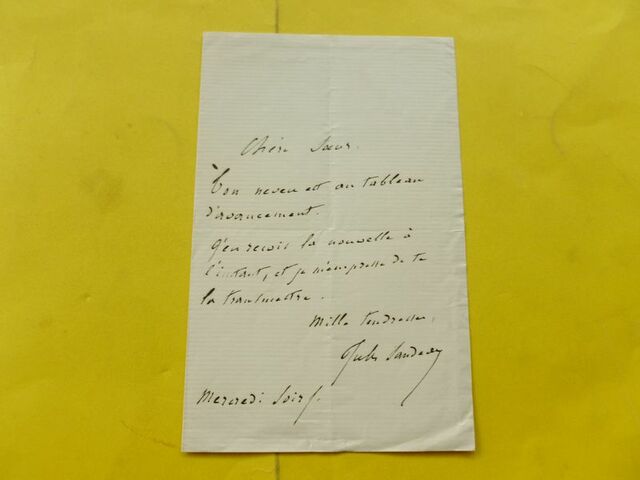 Chère Sœur.
Ton neveu est au tableau
d'avancement.
J'en reçois la nouvelle à
l'instant, et je m'empresse de te
la transmettre.
Mille tendresses,
Jules Sandeau
Mercredi Soir.